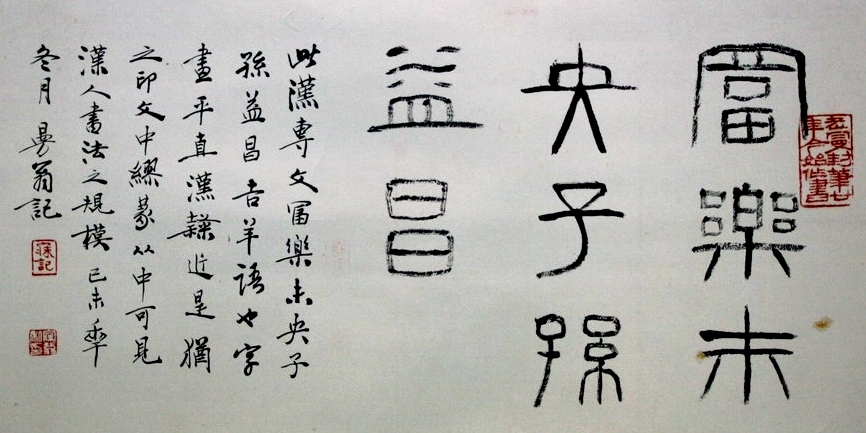 富樂未
央子孫
益昌
此漢專文冨樂未央子
孫益昌吉羊語也字
畫平直漢隸近是猶
之印文中繆篆从中可見
漢人書法之規模己未年
冬月曼翁記